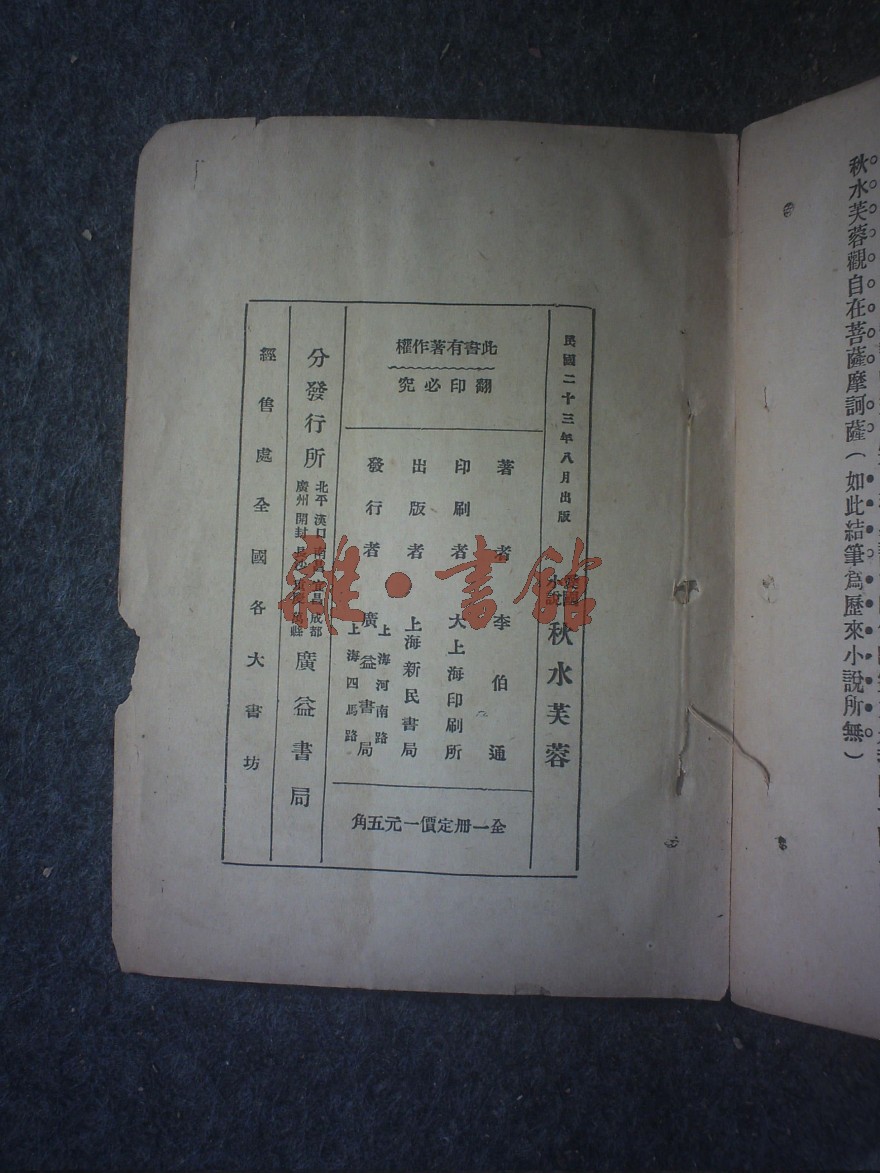 秋水芙蓉觀自在菩薩摩訶薩（如此結筆爲歷來小說所無）
民國二十三年八月出版
小說
秋水芙蓉
此書有著作權
翻印必究
著者 李伯通
印刷者 大上海印刷所
出版者 上海新民書局
發行者 廣益書局
上海河南路
上海四馬路
全一册定價一元五角
分發行所
北平 漢口
成都
廣州 開封
廣益書局
經售處全國各大書坊
雜·書館